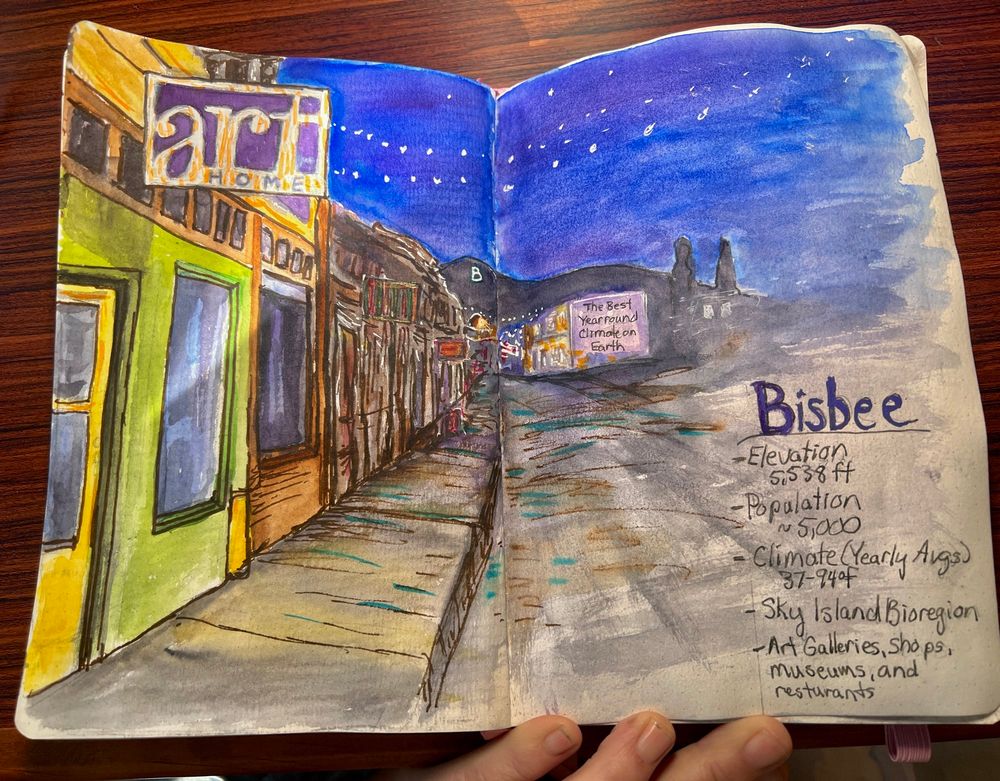 art
HOME
B
The Best
Year round
Climate on
Earth
Bisbee
- Elevation
5,538 ft
- Population
~ 5,000
- Climate (Yearly Avgs)
37-94°f
- Sky Island Bioregion
- Art Galleries, shops,
museums, and
resturants